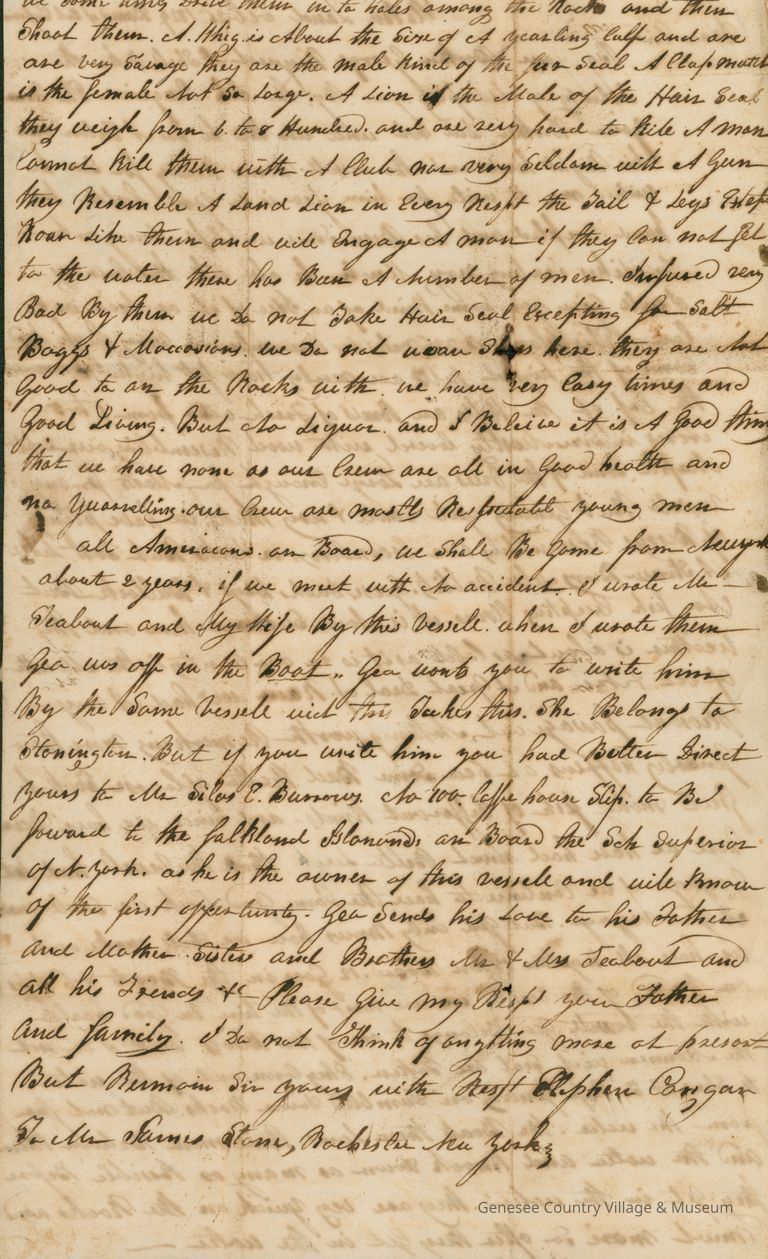 and then
Shoot them. A Whig is About the Size of A yearling Calf and are
are very Savage they are the male kind of the fur Seal A Clapmatch
is the female Not So Large. A Lion is the Male of the Hair Seal
they weigh from 6 to 8 Hundred. and are very hard to Kile A man
Cannot Kill them with A Club nor very Seldom with A Gun
they Resemble A Land Lion in Every Respt the Tail & Legs Except
Roar Like them and wile Engage A man if they Can not Get
to the water there has Been A Number of men Injured very
Bad By them we Do not Take Hair Seal Excepting for Salt
Baggs & Moccasins. we Do not wear Shoes here. they are Not
Good to on the Rocks with we have very Easy times and
Good Living. But No Liquor. and I Beleive it is A Good thing
that we have none as our Crew are all in Good health and
no Quarreling. our Crew are mostly Respectable young men
all Americans. on Board, we Shall Be Gone from Newyork
about 2 years. if we meet with No accident. I wrote Mr
Seabout and My Wife By this vessell. when I wrote them
Geo was off in the Boat.. Geo wants you to write him
By the Same vessell wich this Takes this. She Belongs to
Stonington. But if you write him you had Better Direct
yours to Mr Silas E. Burrows. No 100. Coffe house Slip. to Be
foward to the falkland Islands on Board the Sch Superior
of N. york. as he is the owner of this vessell and wile Know
of the first oppertunity. Geo Sends his Love to his Father
and Mother Sisters and Brothers Mr & Mrs Seabout and
all his Friends &c Please Give my Respt your Father
And family. I Do not Think of anything more at present
But Remain Sir yours with Respt Stephen Congar
To Mr James Stone, Rochester New York
Genesee Country Village & Museum